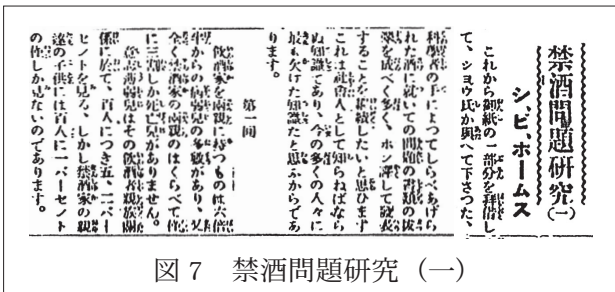 禁酒問題研究(一)
シ、ビ、ホームス
これから御紙の一部分を拜借し
て、ショウ氏が與へて下さつた、
科學者の手によつてしらべあげら
れた酒に就いての問題の書類の拔
萃を成べく多く、ホン譯して發表
することを継續したいと思ひます
これは社會人として知らねばなら
ぬ知識であり、今の多くの人々に
最も欠けた知識だと思ふからであ
ります。
第一回
飲酒家を兩親に持つものは六倍
半からの病弱兒の多數があり、父
全く禁酒家の兩親のはくらべて件
に三割しか死亡兒がありません。
意志薄弱兒はその飲酒者親族關
係に於て、百人につき五、二パー
セントを見る、しかし禁酒家の親
達の子供には百人に一パーセント
の件しか見ないのであります。
図7 禁酒問題研究(一)